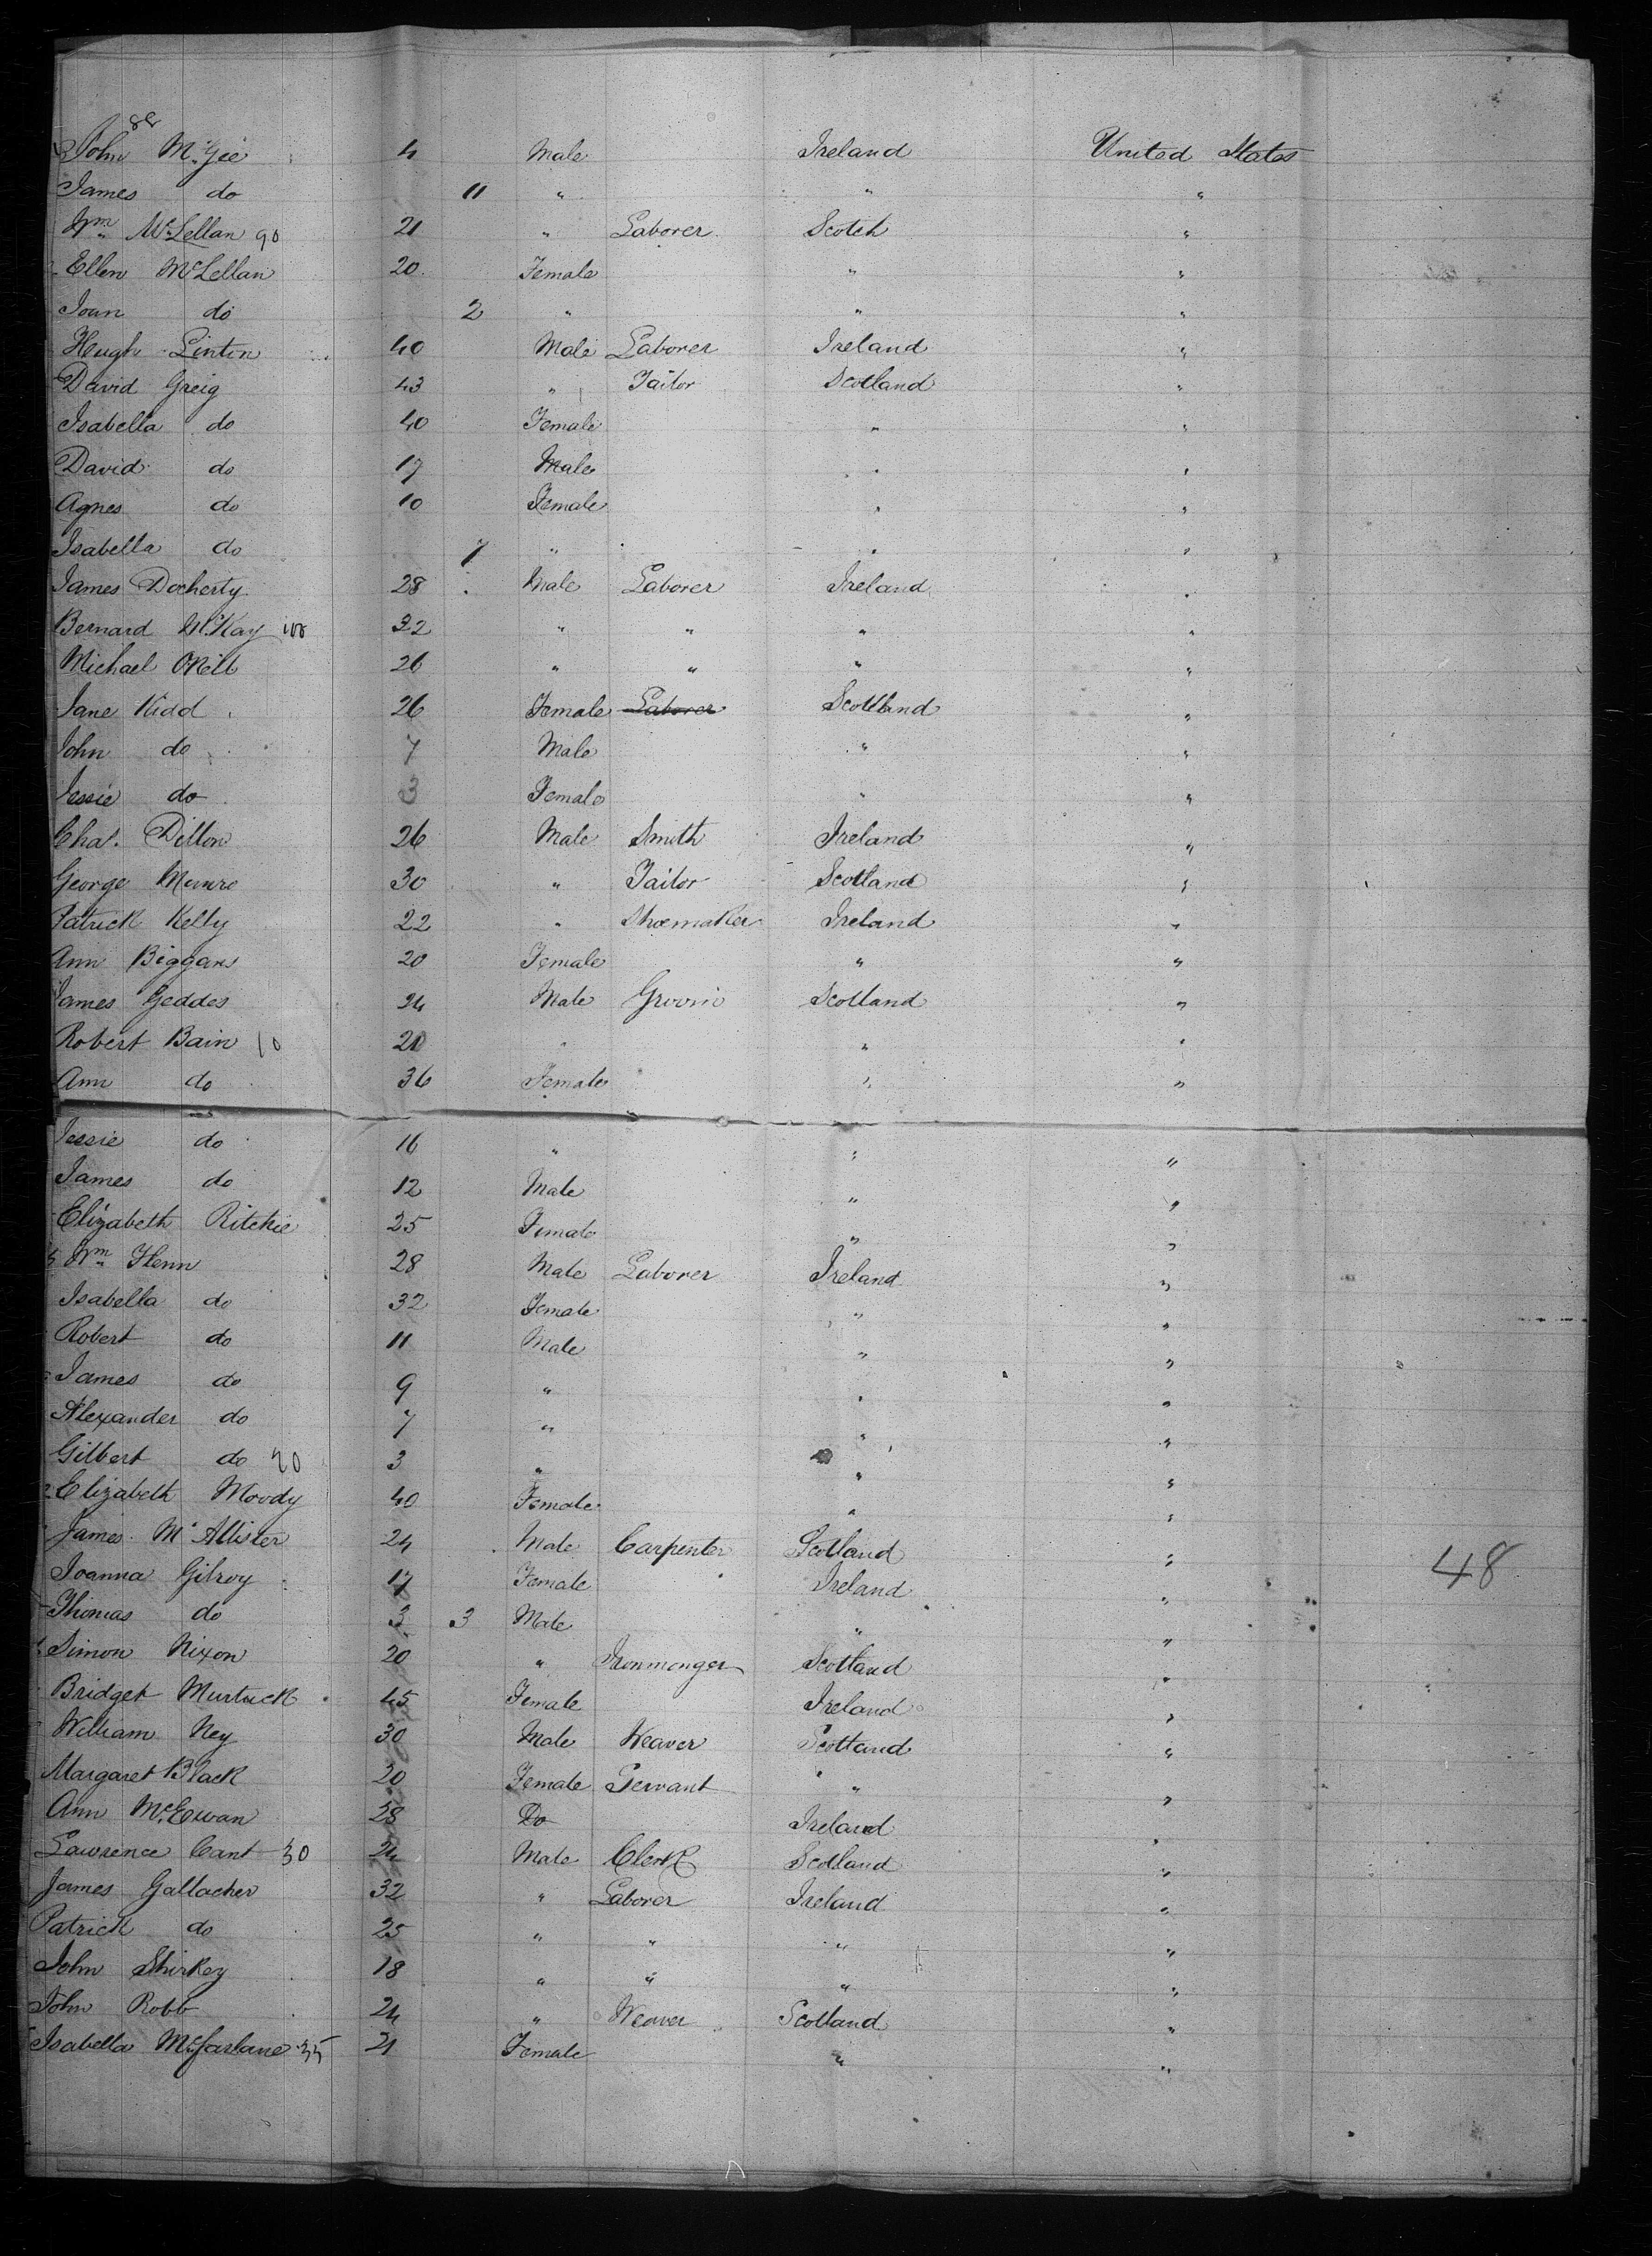 88
John McGee 4 Male Ireland United States
James do 11 " " "
Wm McLellan 90 21 " Laborer Scotch "
Ellen McLellan 20 Female " "
Joan do 2 " " "
Heugh Linton 40 Male Laborer Ireland "
David Greig 43 " Tailor Scotland "
Isabella do 40 Female " "
David do 17 Male " "
Agnes do 10 Female " "
Isabella do 7 " " "
James Docherty 28 Male Laborer Ireland "
Bernard McKay 100 32 " " " "
Michael ONeil 26 " " " "
Jane Kidd 26 Female Laborer Scotland "
John do 7 Male " "
Jessie do 3 Female " "
Chas. Dillon 26 Male Smith Ireland "
George Munro 30 " Tailor Scotland "
Patrick Kelly 22 " Shoemaker Ireland "
Ann Biggans 20 Female " "
James Geddes 24 Male Groom Scotland "
Robert Bain 10 20 " " "
Ann do 36 Female " "
Jessie do 16 " " "
James do 12 Male " "
Elizabeth Ritchie 25 Female " "
Wm Henn 28 Male Laborer Ireland "
Isabella do 32 Female " "
Robert do 11 Male " "
James do 9 " " "
Alexander do 7 " " "
Gilbert do 20 3 " " "
Elizabeth Moody 40 Female " "
James McAllister 24 Male Carpenter Scotland "
48
Joanna Gilroy 17 Female Ireland "
Thomas do 3 3 Male " "
Simon Nixon 20 " Ironmonger Scotland "
Bridget Murtuck 45 Female Ireland "
William Ney 30 Male Weaver Scotland "
Margaret Black 20 Female Servant " "
Ann McEwan 28 Do Ireland "
Lawrence Cant 30 24 Male Clerk Scotland "
James Gallacher 32 " Laborer Ireland "
Patrick do 25 " " " "
John Shirkey 18 " " " "
John Robb 24 " Weaver Scotland "
Isabella McFarlane 35 21 Female " "